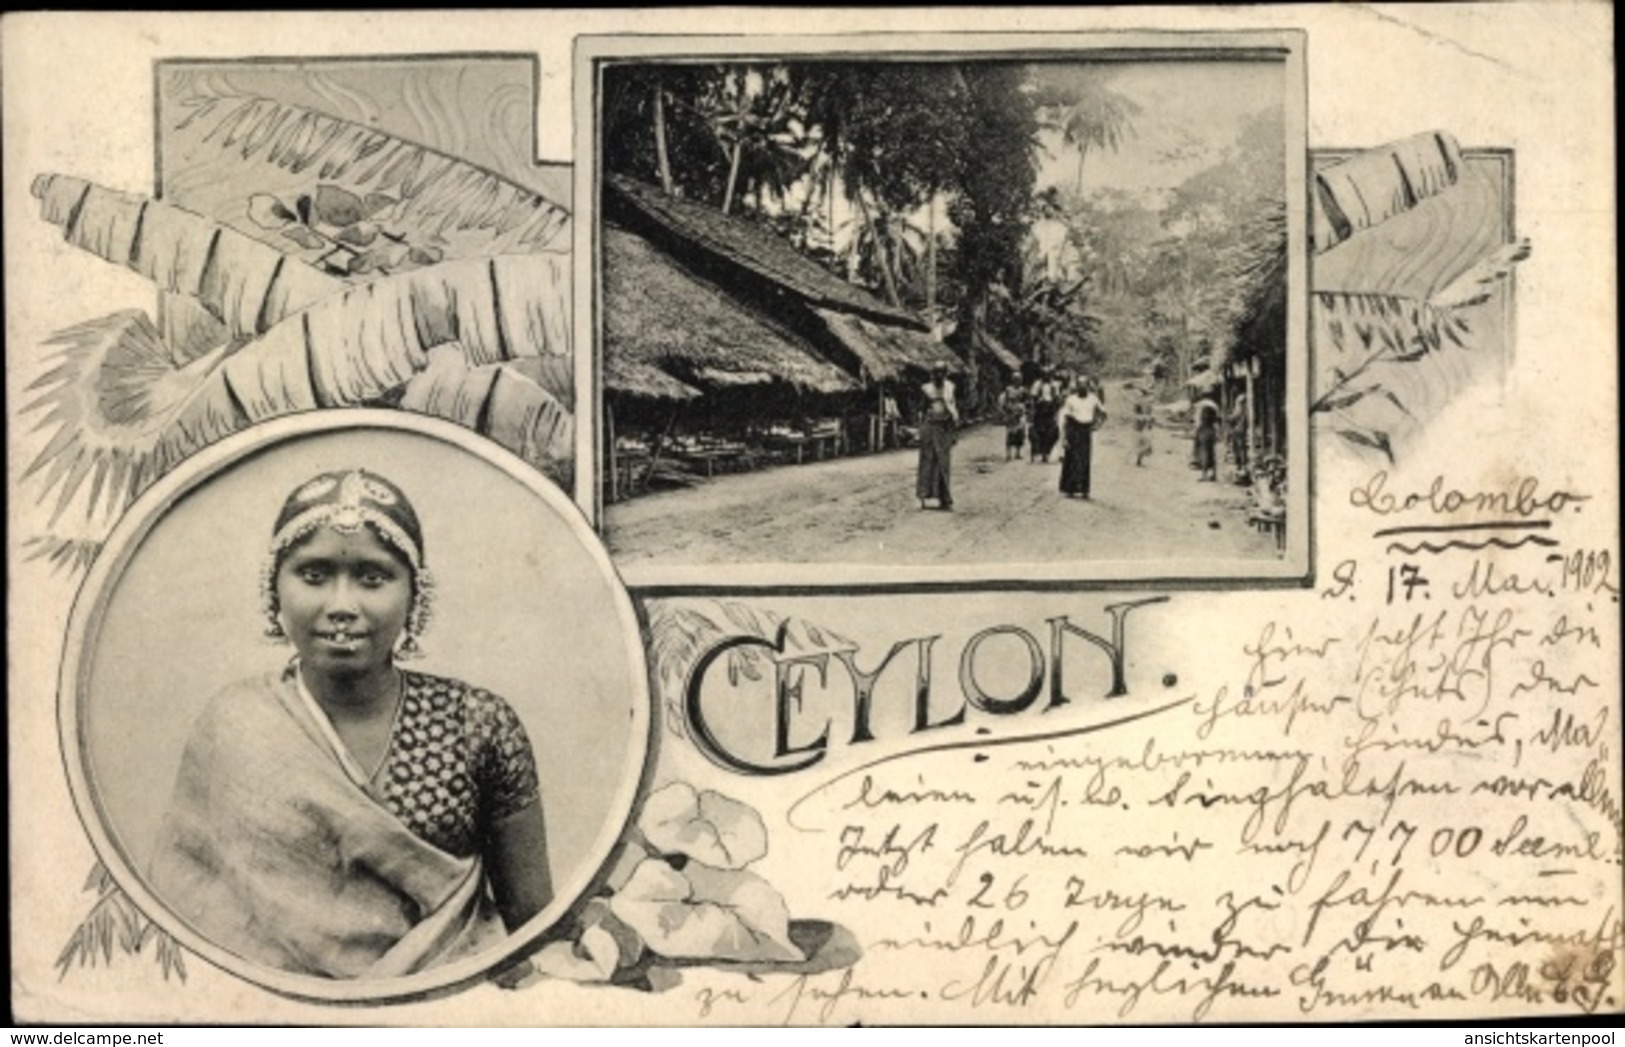 CEYLON.
Colombo.
d. 17. Mai. 1902.
Hier seht Ihr die
Häuser (Huts) der
eingeborenen Hindus, Ma-
leien u. s. w. Singhalesen vor allem
Jetzt haben wir noch 7,700 Seeml.
oder 26 Tage zu fahren um
endlich wieder die Heimath
zu sehen. Mit herzlichen Grüßen an Alle
www.akpool.de
ansichtskartenpool